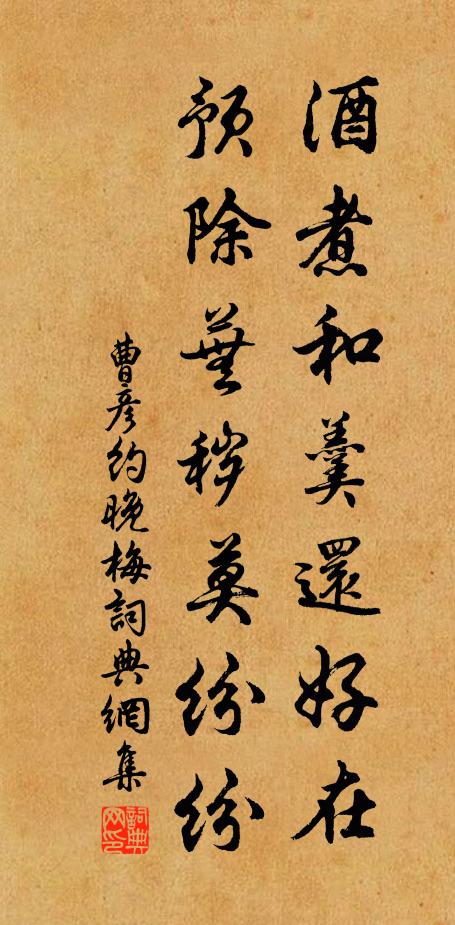 酒煮和羹還好在
預除蕪穢莫紛紛
曹彦約晚梅詞典網集
詞典網印